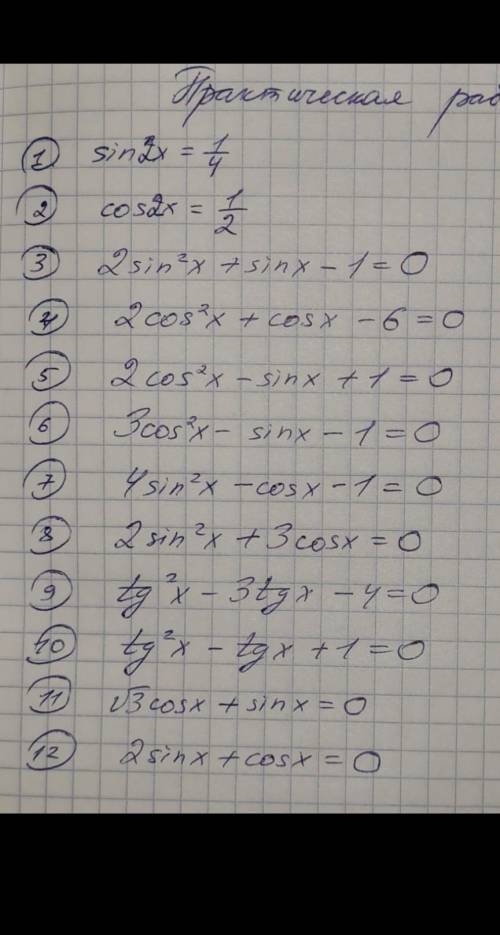 Практическая раб
1 sin²x = 1/4
2 cos2x = 1/2
3 2sin²x + sinx - 1 = 0
4 2cos²x + cosx - 6 = 0
5 2cos²x - sinx + 1 = 0
6 3cos²x - sinx - 1 = 0
7 4sin²x - cosx - 1 = 0
8 2sin²x + 3cosx = 0
9 tg²x - 3tgx - 4 = 0
10 tg²x - tgx + 1 = 0
11 √3cosx + sinx = 0
12 2sinx + cosx = 0